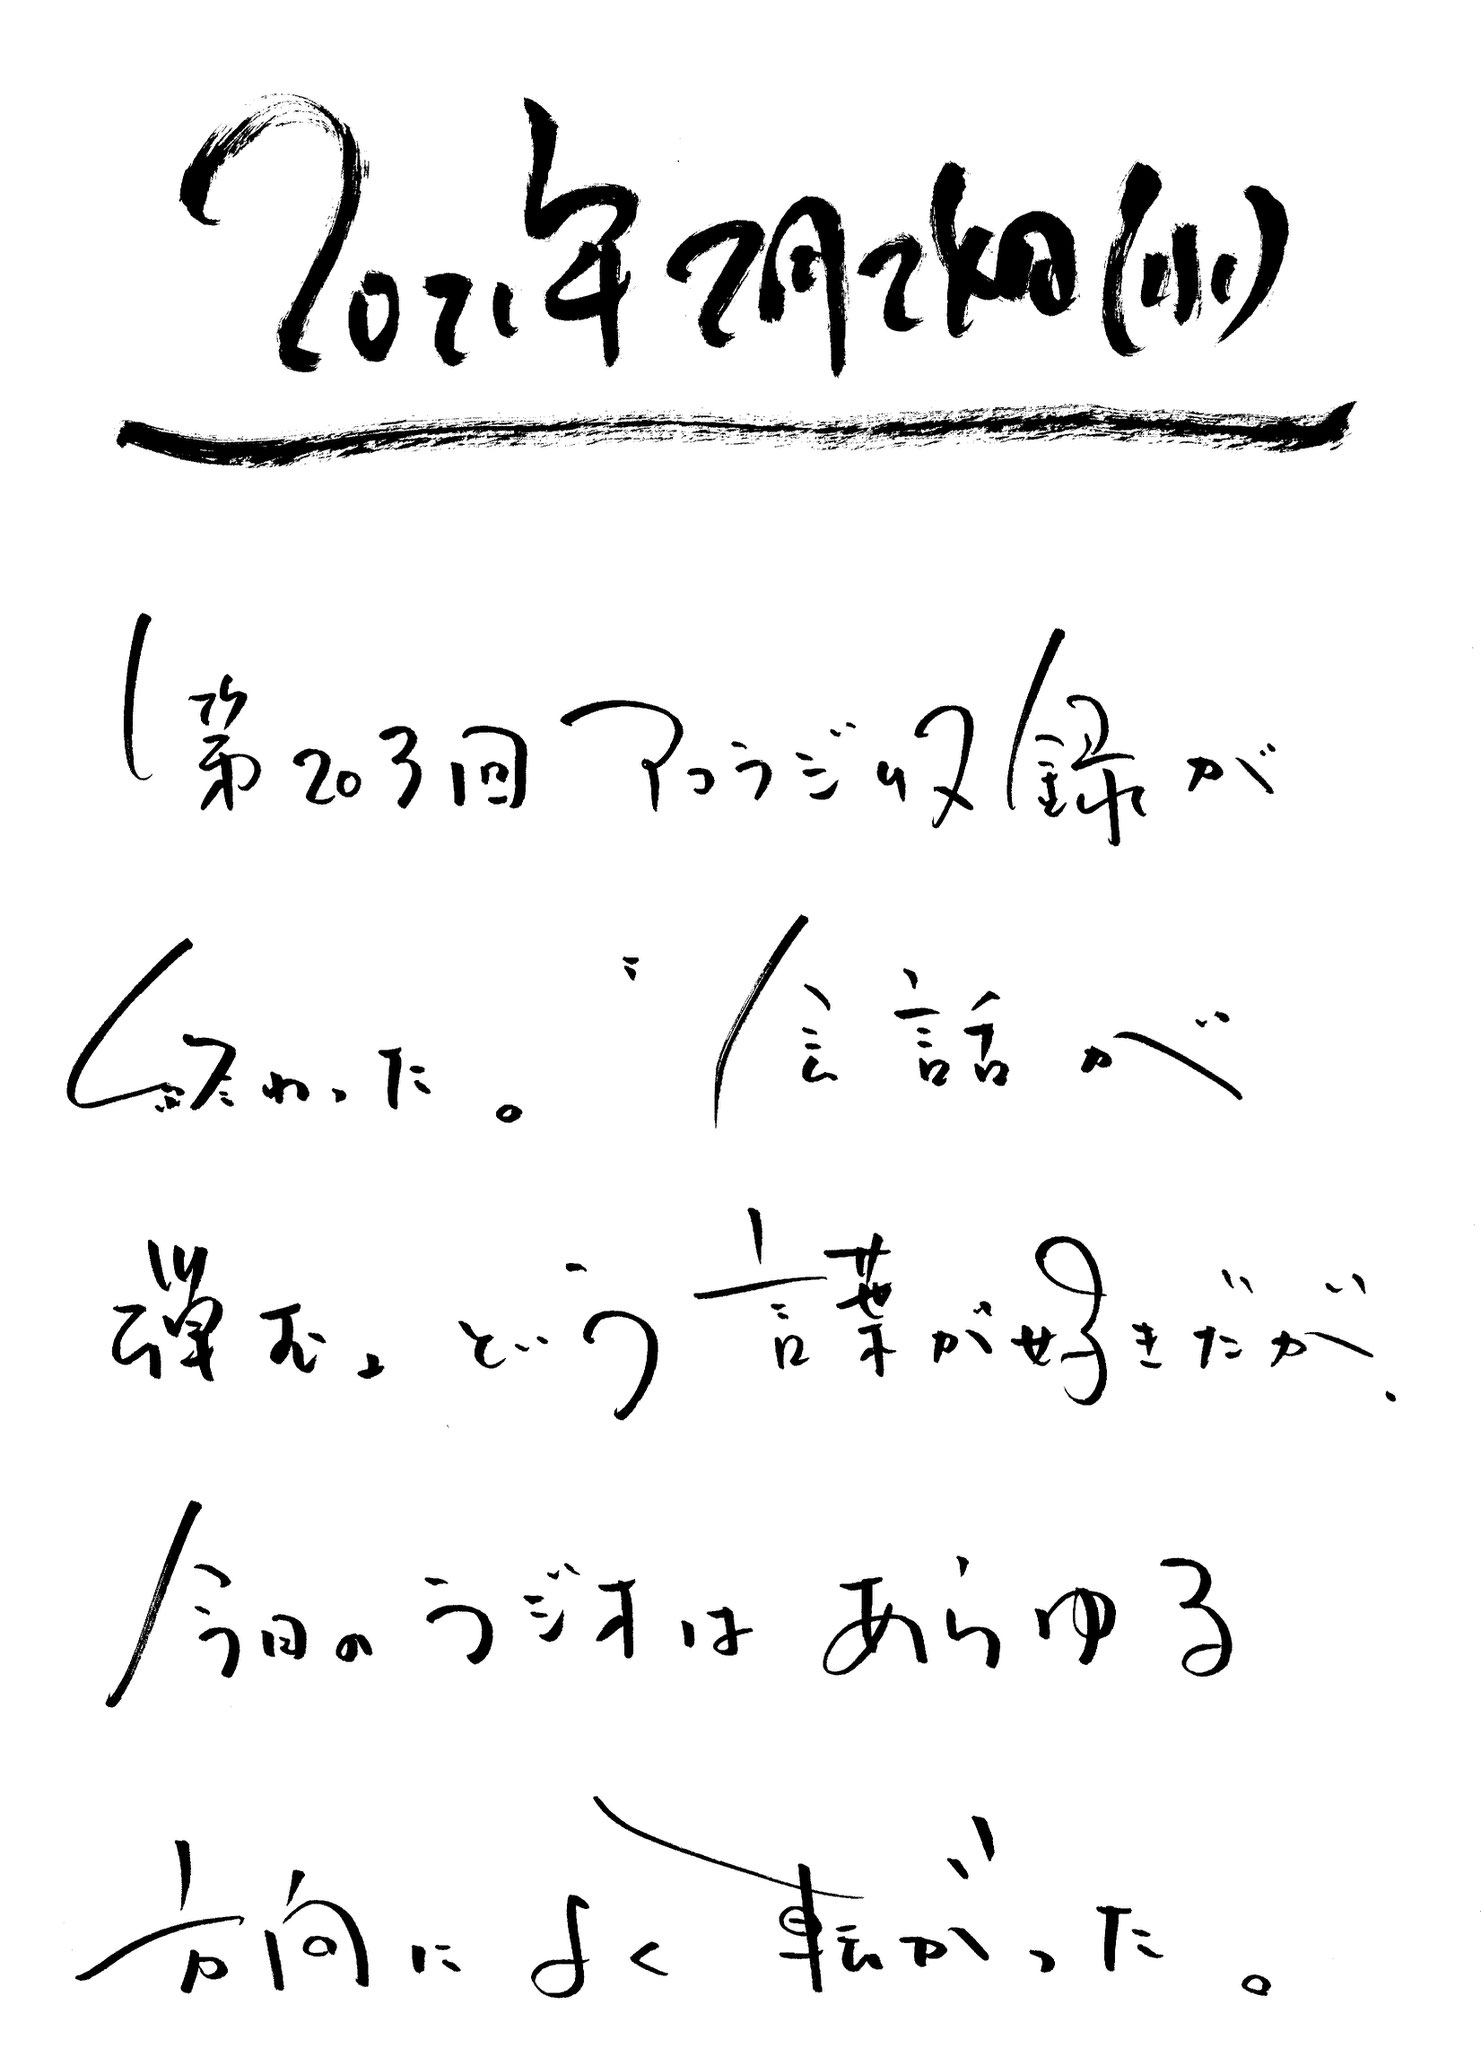 2021年2月24日(水)
第203回アコラジ収録が
終わった。〝会話が
弾む〟という言葉が好きだが、
今日のラジオはあらゆる
方向によく転がった。